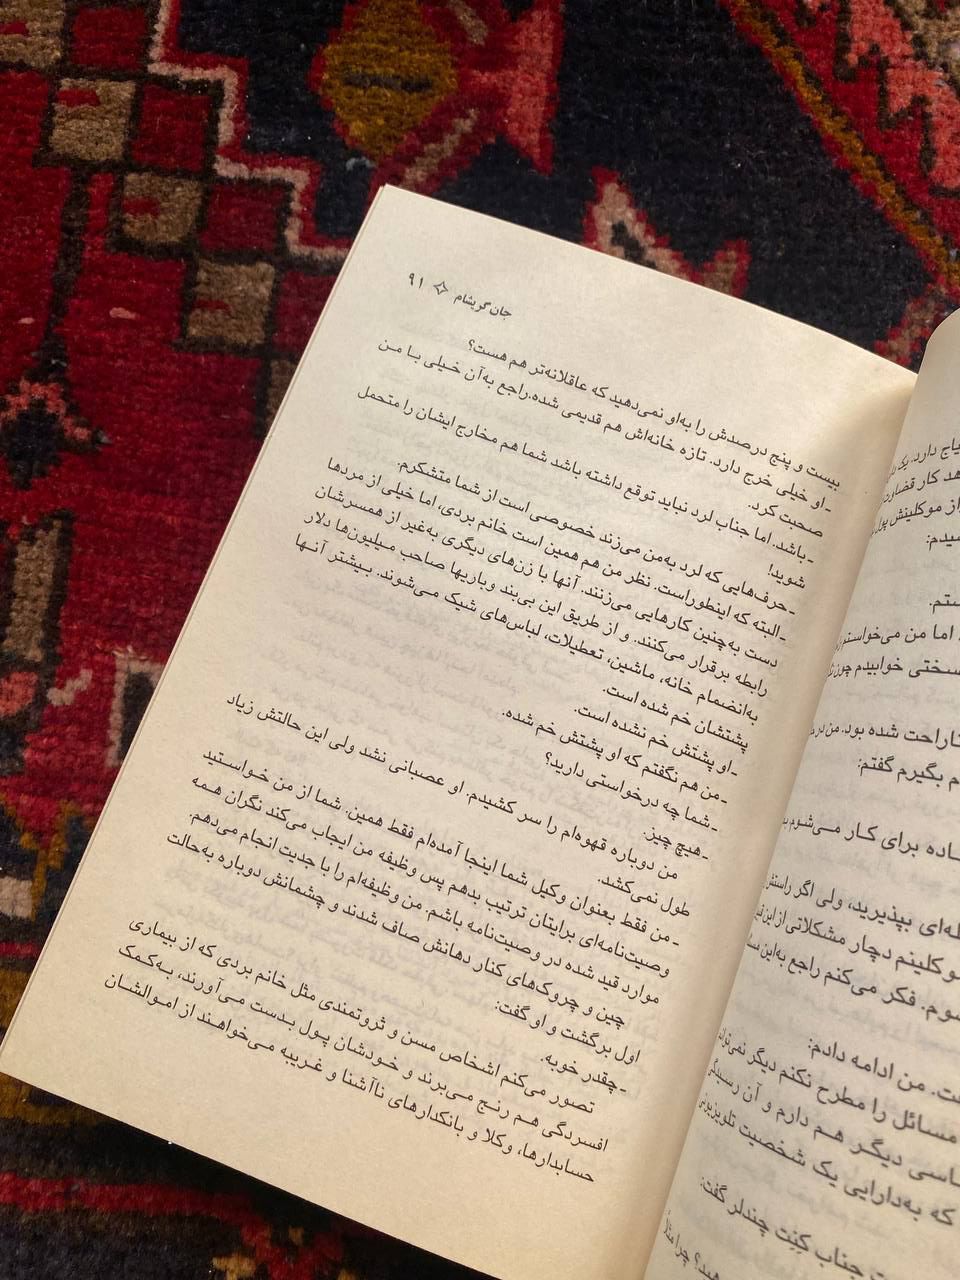 جان گریشام ✧ ۹۱
بیست و پنج درصدش را به‌او نمی‌دهید که عاقلانه‌تر هم هست؟
ـ او خیلی خرج دارد. تازه خانه‌اش هم قدیمی شده.راجع به‌آن خیلی با من
صحبت کرد.
ـ باشد. اما جناب لرد نباید توقع داشته باشد شما هم مخارج ایشان را متحمل
شوید!
ـ حرف‌هایی که لرد به‌من می‌زند خصوصی است از شما متشکرم.
ـ البته که اینطوراست. نظر من هم همین است خانم بردی، اما خیلی از مردها
دست به‌چنین کارهایی می‌زنند. آنها با زن‌های دیگری به‌غیر از همسرشان
رابطه برقرار می‌کنند. و از طریق این بی‌بند وباریها صاحب میلیون‌ها دلار
به‌انضمام خانه، ماشین، تعطیلات، لباس‌های شیک می‌شوند. بیشتر آنها
پشتشان خم شده است.
ـ او پشتش خم نشده است.
ـ من هم نگفتم که او پشتش خم شده.
ـ شما چه درخواستی دارید؟
ـ هیچ چیز.
من دوباره قهوه‌ام را سر کشیدم. او عصبانی نشد ولی این حالتش زیاد
طول نمی‌کشد.
ـ من فقط بعنوان وکیل شما اینجا آمده‌ام فقط همین. شما از من خواستید
وصیت‌نامه‌ای برایتان ترتیب بدهم پس وظیفه من ایجاب می‌کند نگران همه
موارد قید شده در وصیت‌نامه باشم. من وظیفه‌ام را با جدیت انجام می‌دهم.
چین و چروک‌های کنار دهانش صاف شدند و چشمانش دوباره به‌حالت
اول برگشت و او گفت:
ـ چقدر خوبه.
تصور می‌کنم اشخاص مسن و ثروتمندی مثل خانم بردی که از بیماری
افسردگی هم رنج می‌برند و خودشان پول بدست می‌آورند، به‌کمک
حسابدارها، وکلا و بانکدارهای ناآشنا و غریبه می‌خواهند از اموالشان
دارد. یک
کار قضاوت
از موکلینش پول
اما من می‌خواستم
سختی خوابیدم
ناراحت شده بود. من
بگیرم گفتم:
برای کار می‌شوم
بپذیرید، ولی اگر
دچار مشکلاتی از این
فکر می‌کنم راجع به‌این
من ادامه دادم:
مسائل را مطرح نکنم دیگر
دیگر هم دارم و آن
که به‌دارایی یک شخصیت تلویزیونی
جناب کِنِت چندلر گفت:
چرا مثلاً